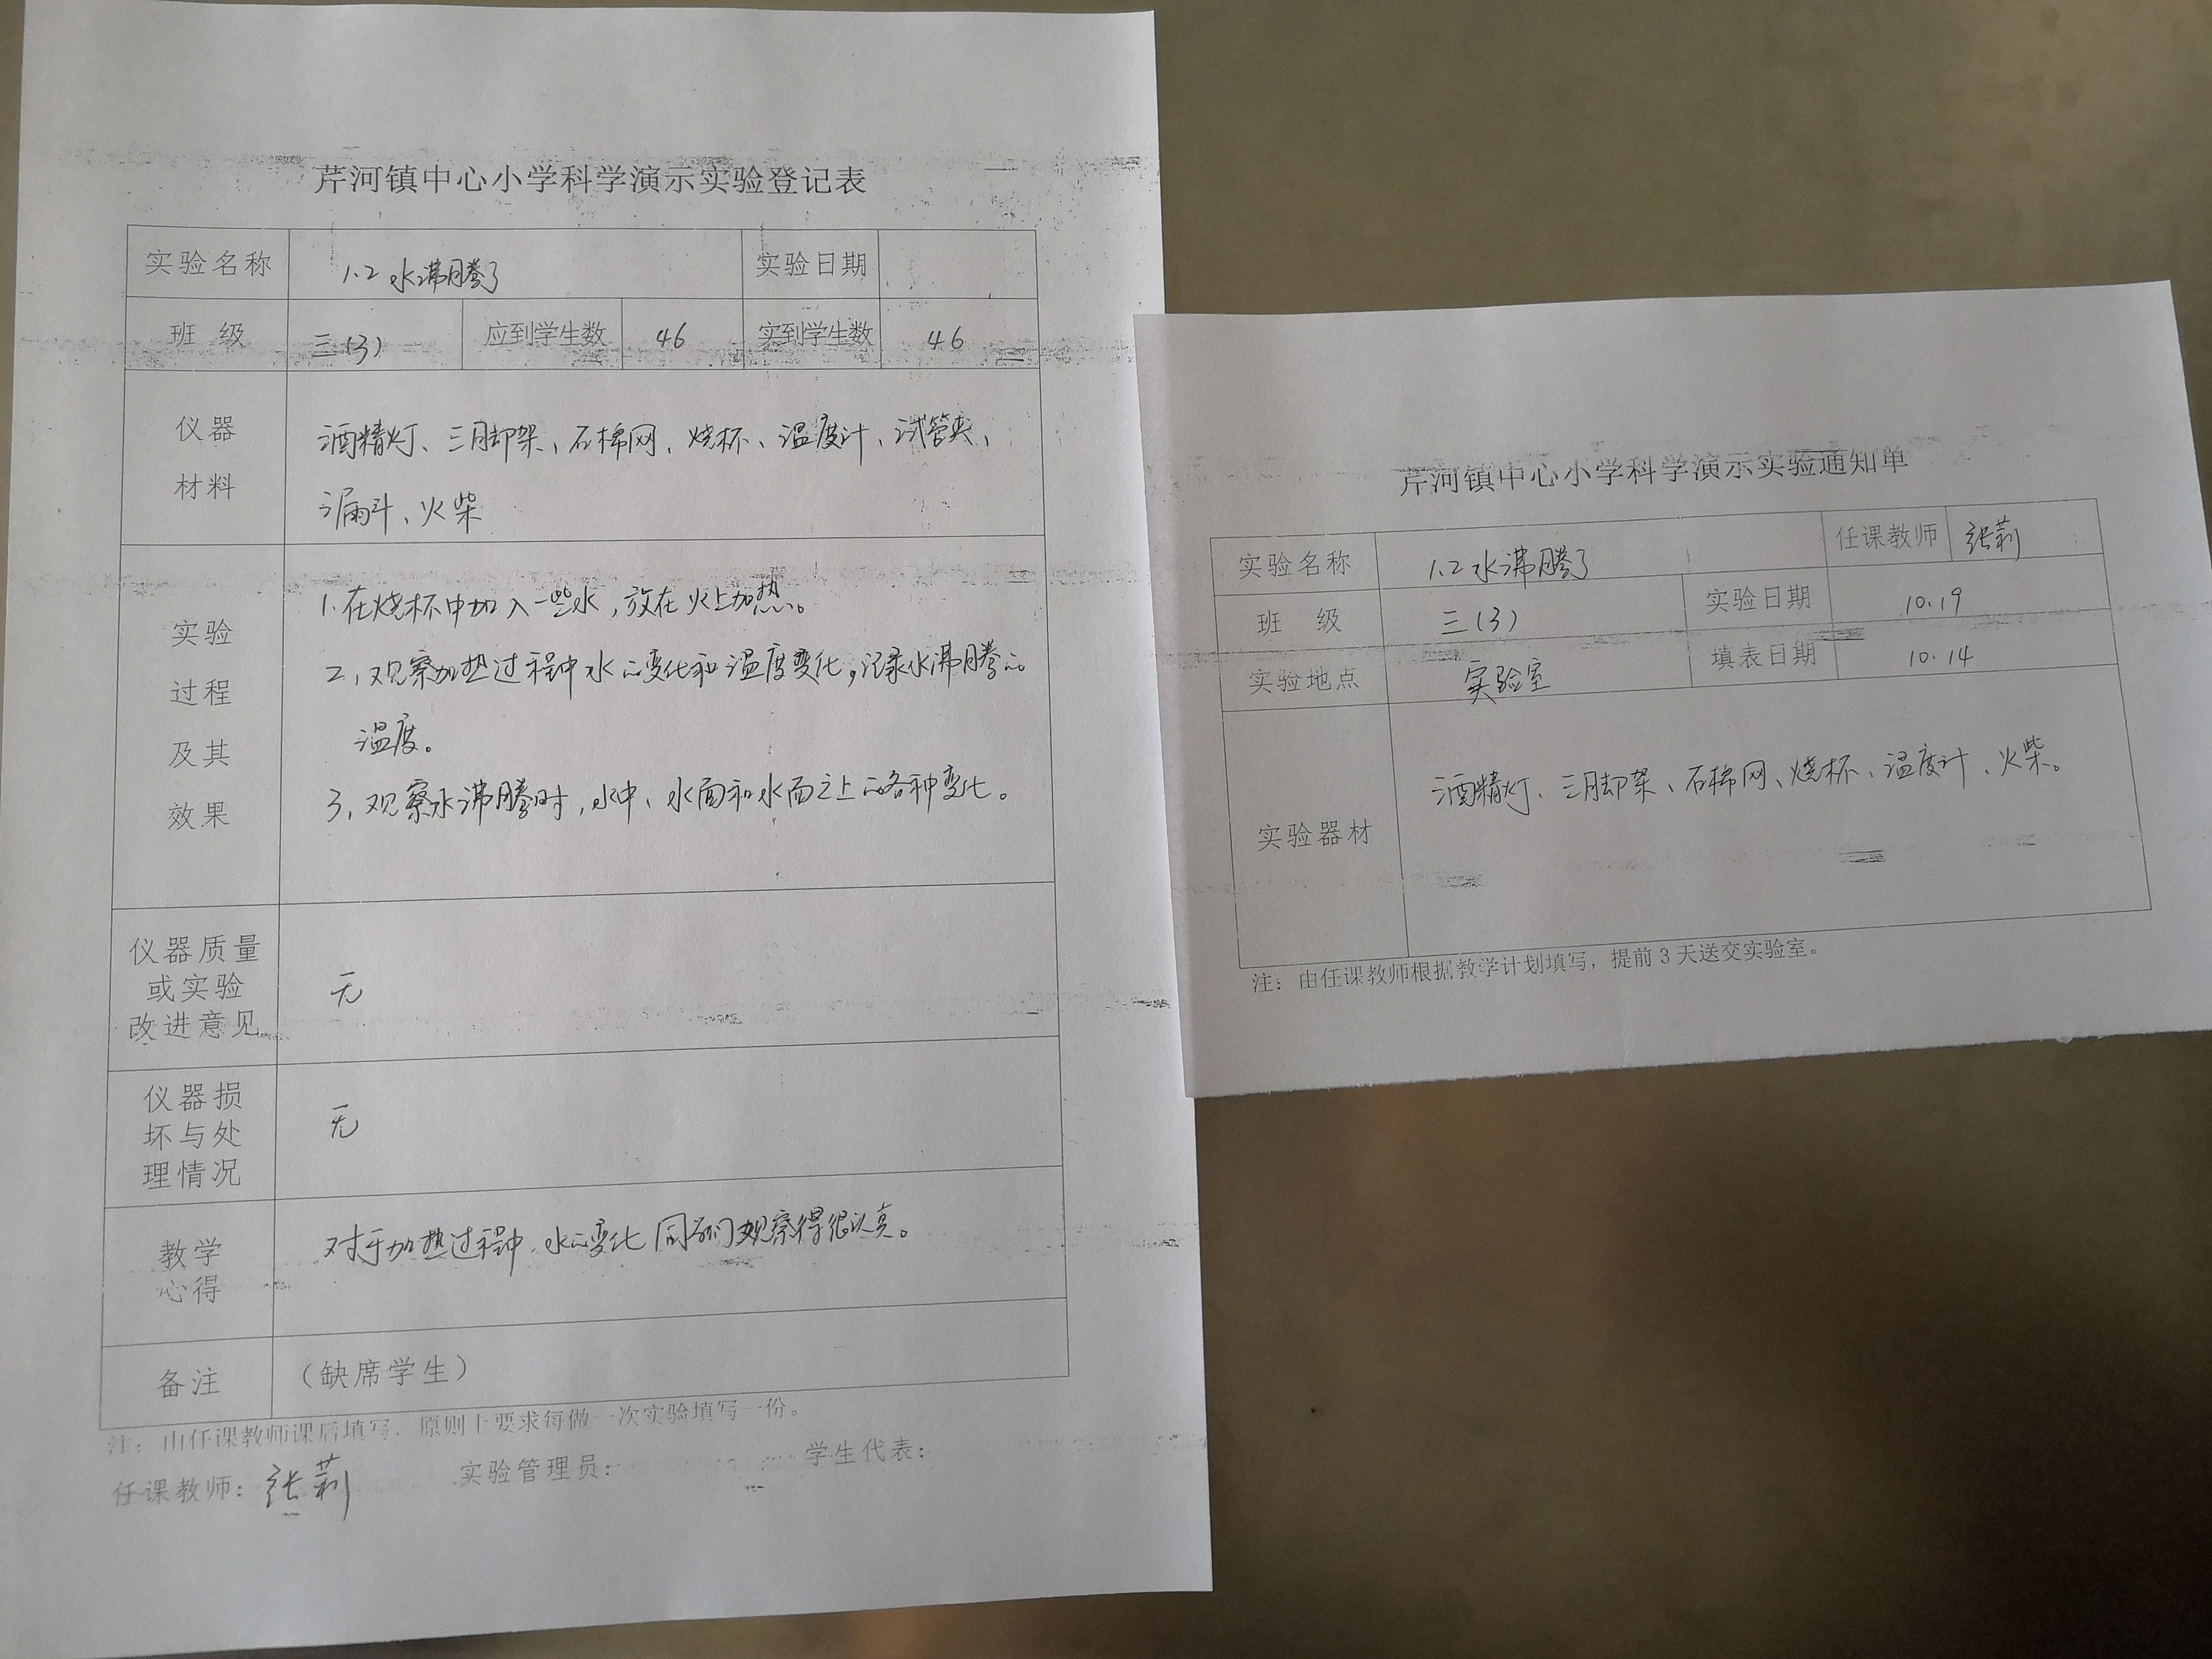 芹河镇中心小学科学演示实验登记表
实验名称 1.2 水沸腾了 实验日期
班 级 三(3) 应到学生数 46 实到学生数 46
仪器
材料
酒精灯、三脚架、石棉网、烧杯、温度计、试管夹、
漏斗、火柴
实验
过程
及其
效果
1.在烧杯中加入一些水,放在火上加热。
2,观察加热过程中水的变化和温度变化,记录水沸腾的
温度。
3,观察水沸腾时,水中、水面和水面之上的各种变化。
仪器质量
或实验
改进意见
无
仪器损
坏与处
理情况
无
教学
心得
对于加热过程中,水的变化同学们观察得很认真。
备注 (缺席学生)
注:由任课教师课后填写,原则上要求每做一次实验填写一份。
任课教师:张莉 实验管理员: 学生代表:
芹河镇中心小学科学演示实验通知单
实验名称 1.2 水沸腾了 任课教师 张莉
班 级 三(3) 实验日期 10.19
实验地点 实验室 填表日期 10.14
实验器材 酒精灯、三脚架、石棉网、烧杯、温度计、火柴。
注:由任课教师根据教学计划填写,提前3天送交实验室。